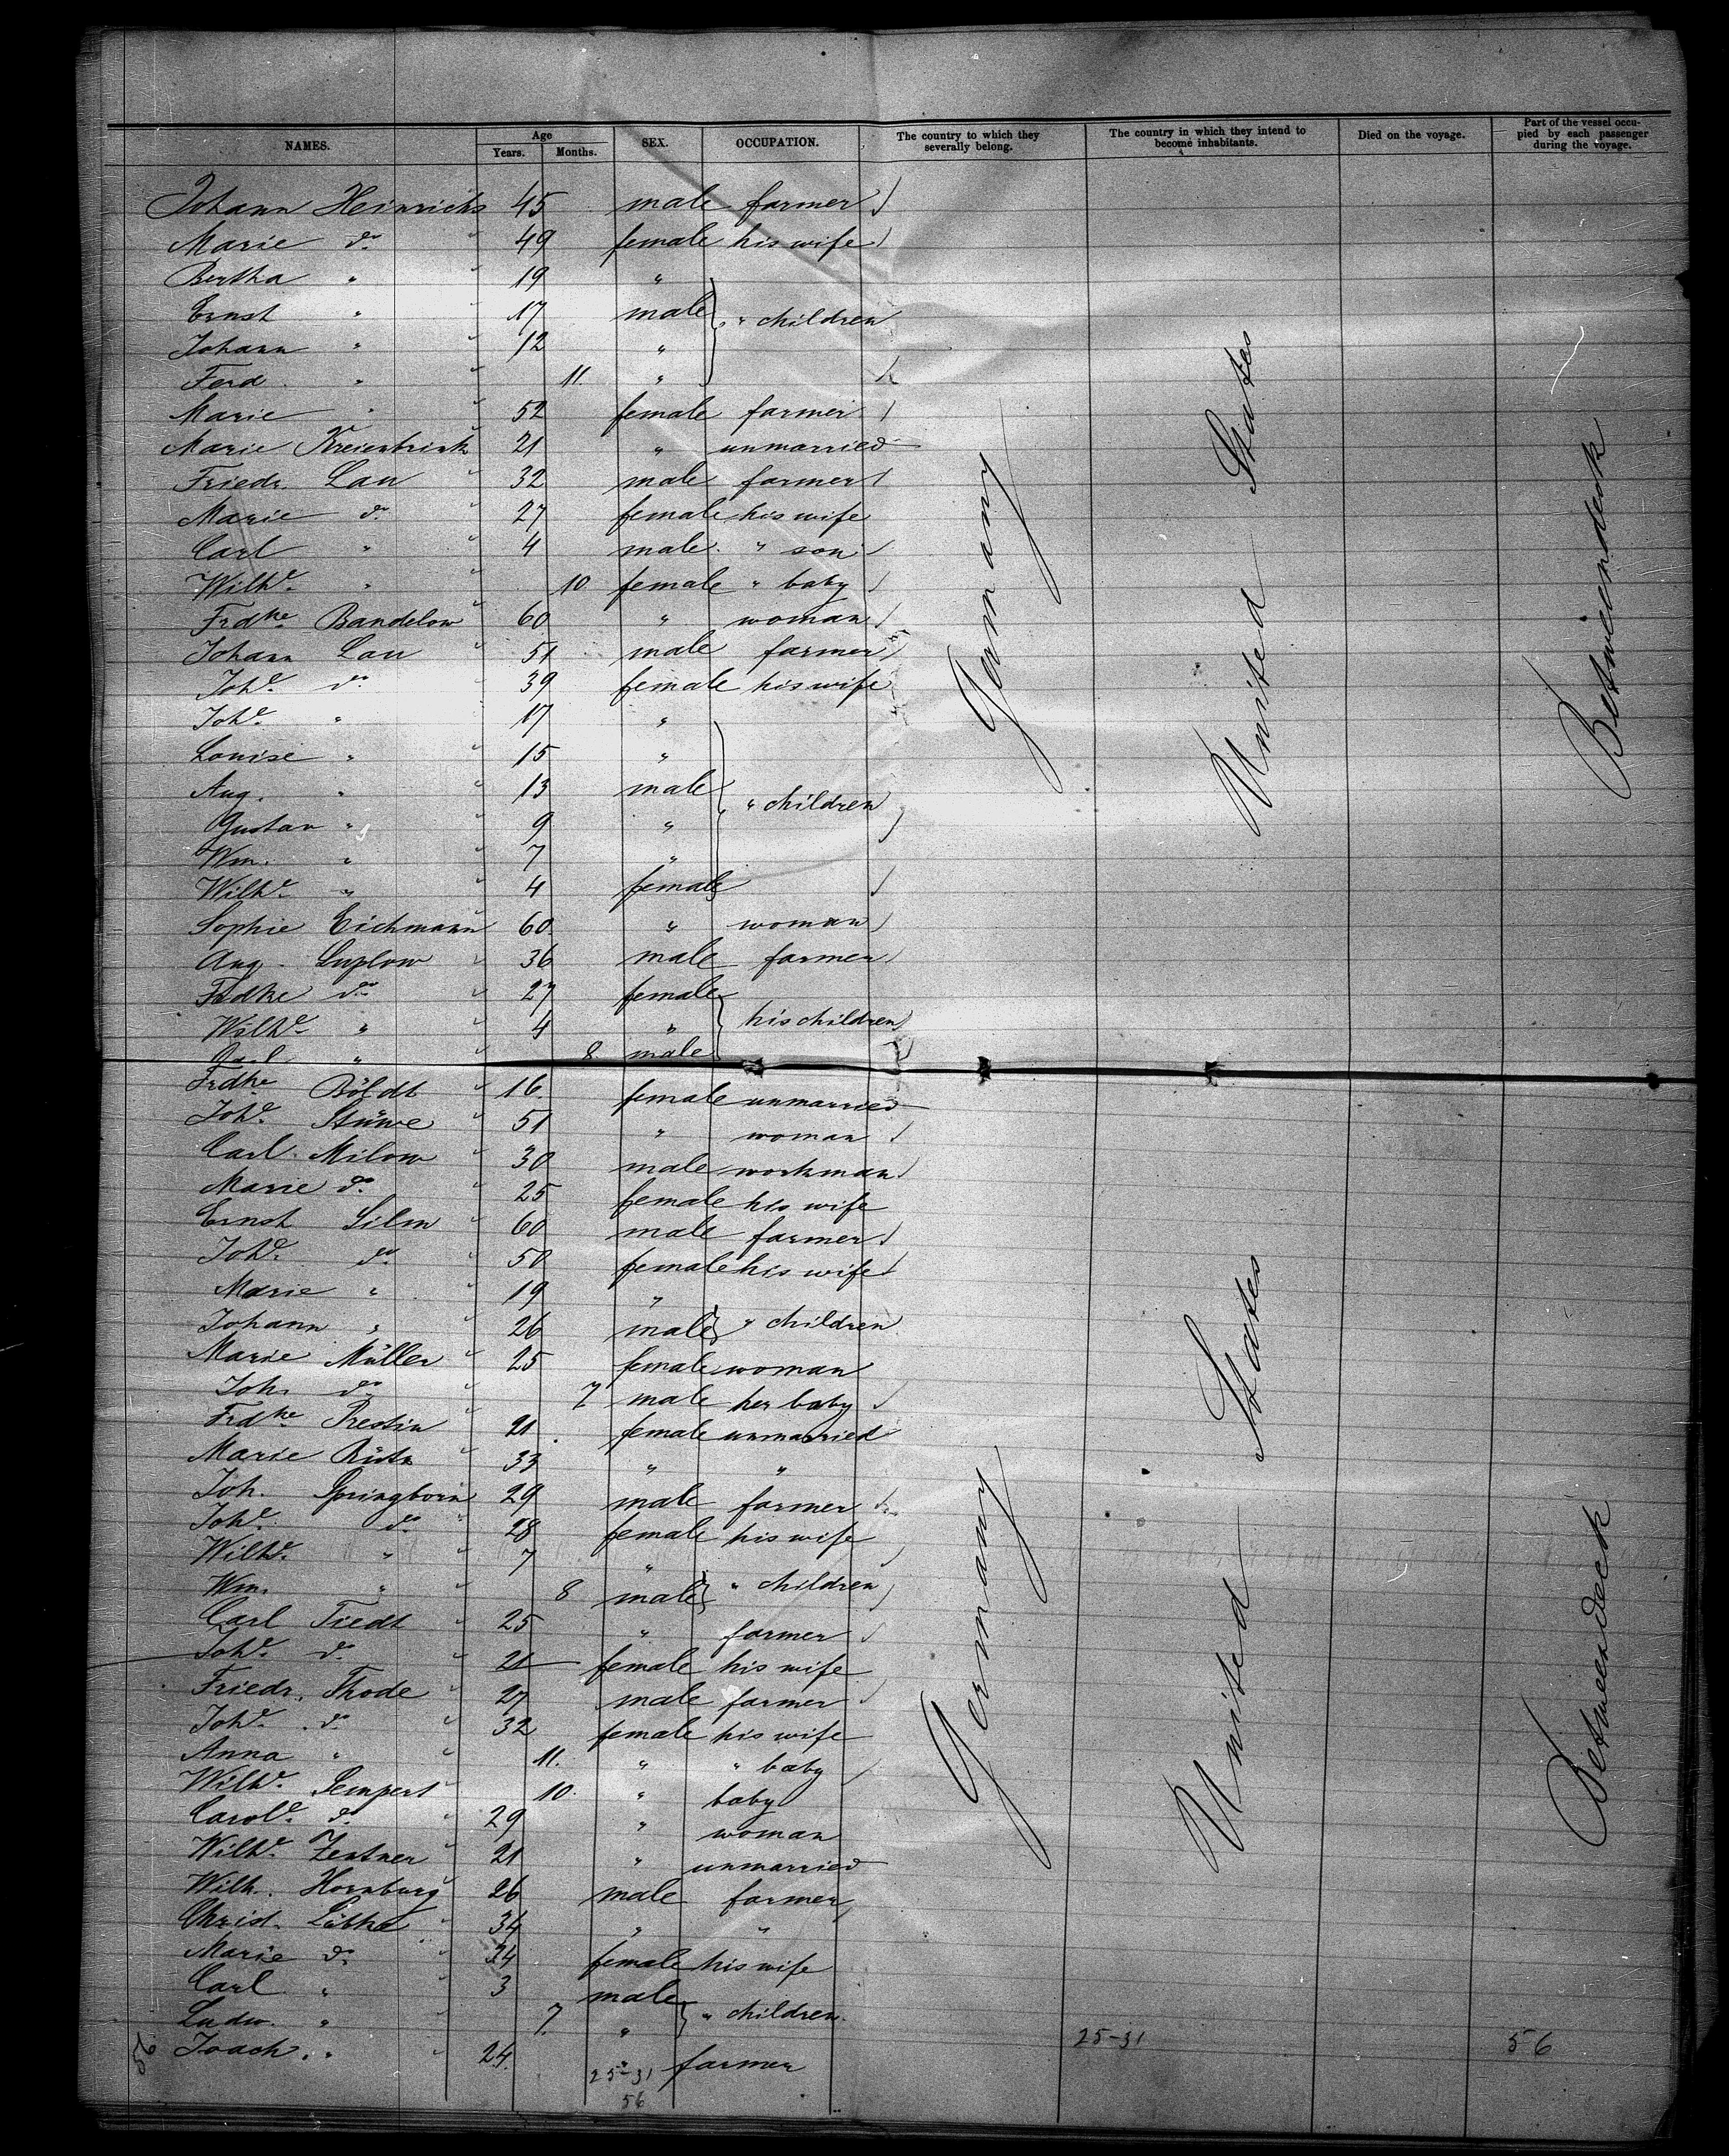 NAMES. Age Years. Months. SEX. OCCUPATION. The country to which they severally belong. The country in which they intend to become inhabitants. Died on the voyage. Part of the vessel occupied by each passenger during the voyage.
Johann Heinrichs 45 male farmer
Marie do 49 female his wife
Bertha " 19 "
Ernst " 17 male " children
Johann " 12 "
Ferd. " 11 "
Marie " 52 female farmer
Marie 21 " unmarried
Friedr. Lau 32 male farmer
Marie do 27 female his wife
Carl " 4 male " son
Wilhe. " 10 female " baby
Frdke Bandelow 60 " woman
Johann Lau 51 male farmer
Johe. do 39 female his wife
Johe. " 17 "
Louise " 15 "
Aug. " 13 male " children
Gustav " 9 "
Wm. " 7 "
Wilhe. " 4 female
Sophie Eichmann 60 " woman
Aug. Luplow 36 male farmer
Frdke do 27 female
Wilhe. " 4 " his children
Carl " 8 male
Frdke 16 female unmarried
Johe. Stüwe 51 " woman
Carl Milow 30 male workman
Marie do 25 female his wife
Ernst Silm 60 male farmer
Johe. do 50 female his wife
Marie " 19 "
Johann " 26 male " children
Marie Müller 25 female woman
Joh. do 7 male her baby
Frdke Prestin 21 female unmarried
Marie 33 " "
Joh. Springborn 29 male farmer
Johe. do 28 female his wife
Wilhe. " 7 "
Wm. " 8 male " children
Carl Tiedt 25 " farmer
Johe. do 21 female his wife
Friedr. Thode 27 male farmer
Johe. do 32 female his wife
Anna " 11 " " baby
Wilhe. Sempert 10 " baby
Carole. do 29 " woman
Wilhe. Zentner 21 " unmarried
Wilh. Hornburg 26 male farmer
Christ. Lübke 34 " "
Marie do 34 female his wife
Carl " 3 male
Ludw. " 7 " " children
Joach. " 24 " farmer
Germany
United States
Betweendeck
Germany
United States
Betweendeck
25-31
56
25-31
56